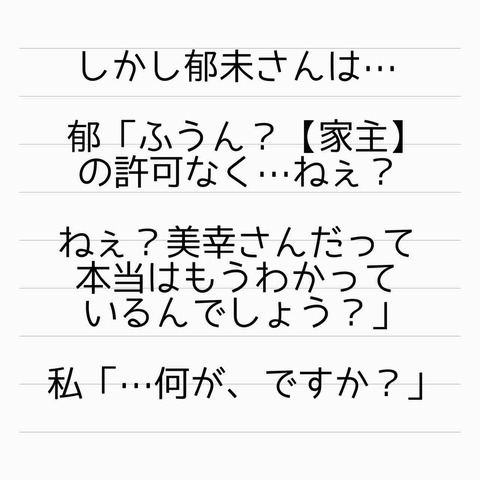 しかし郁未さんは…
郁「ふうん？【家主】
の許可なく…ねぇ？
ねぇ？美幸さんだって
本当はもうわかって
いるんでしょう？」
私「…何が、ですか？」